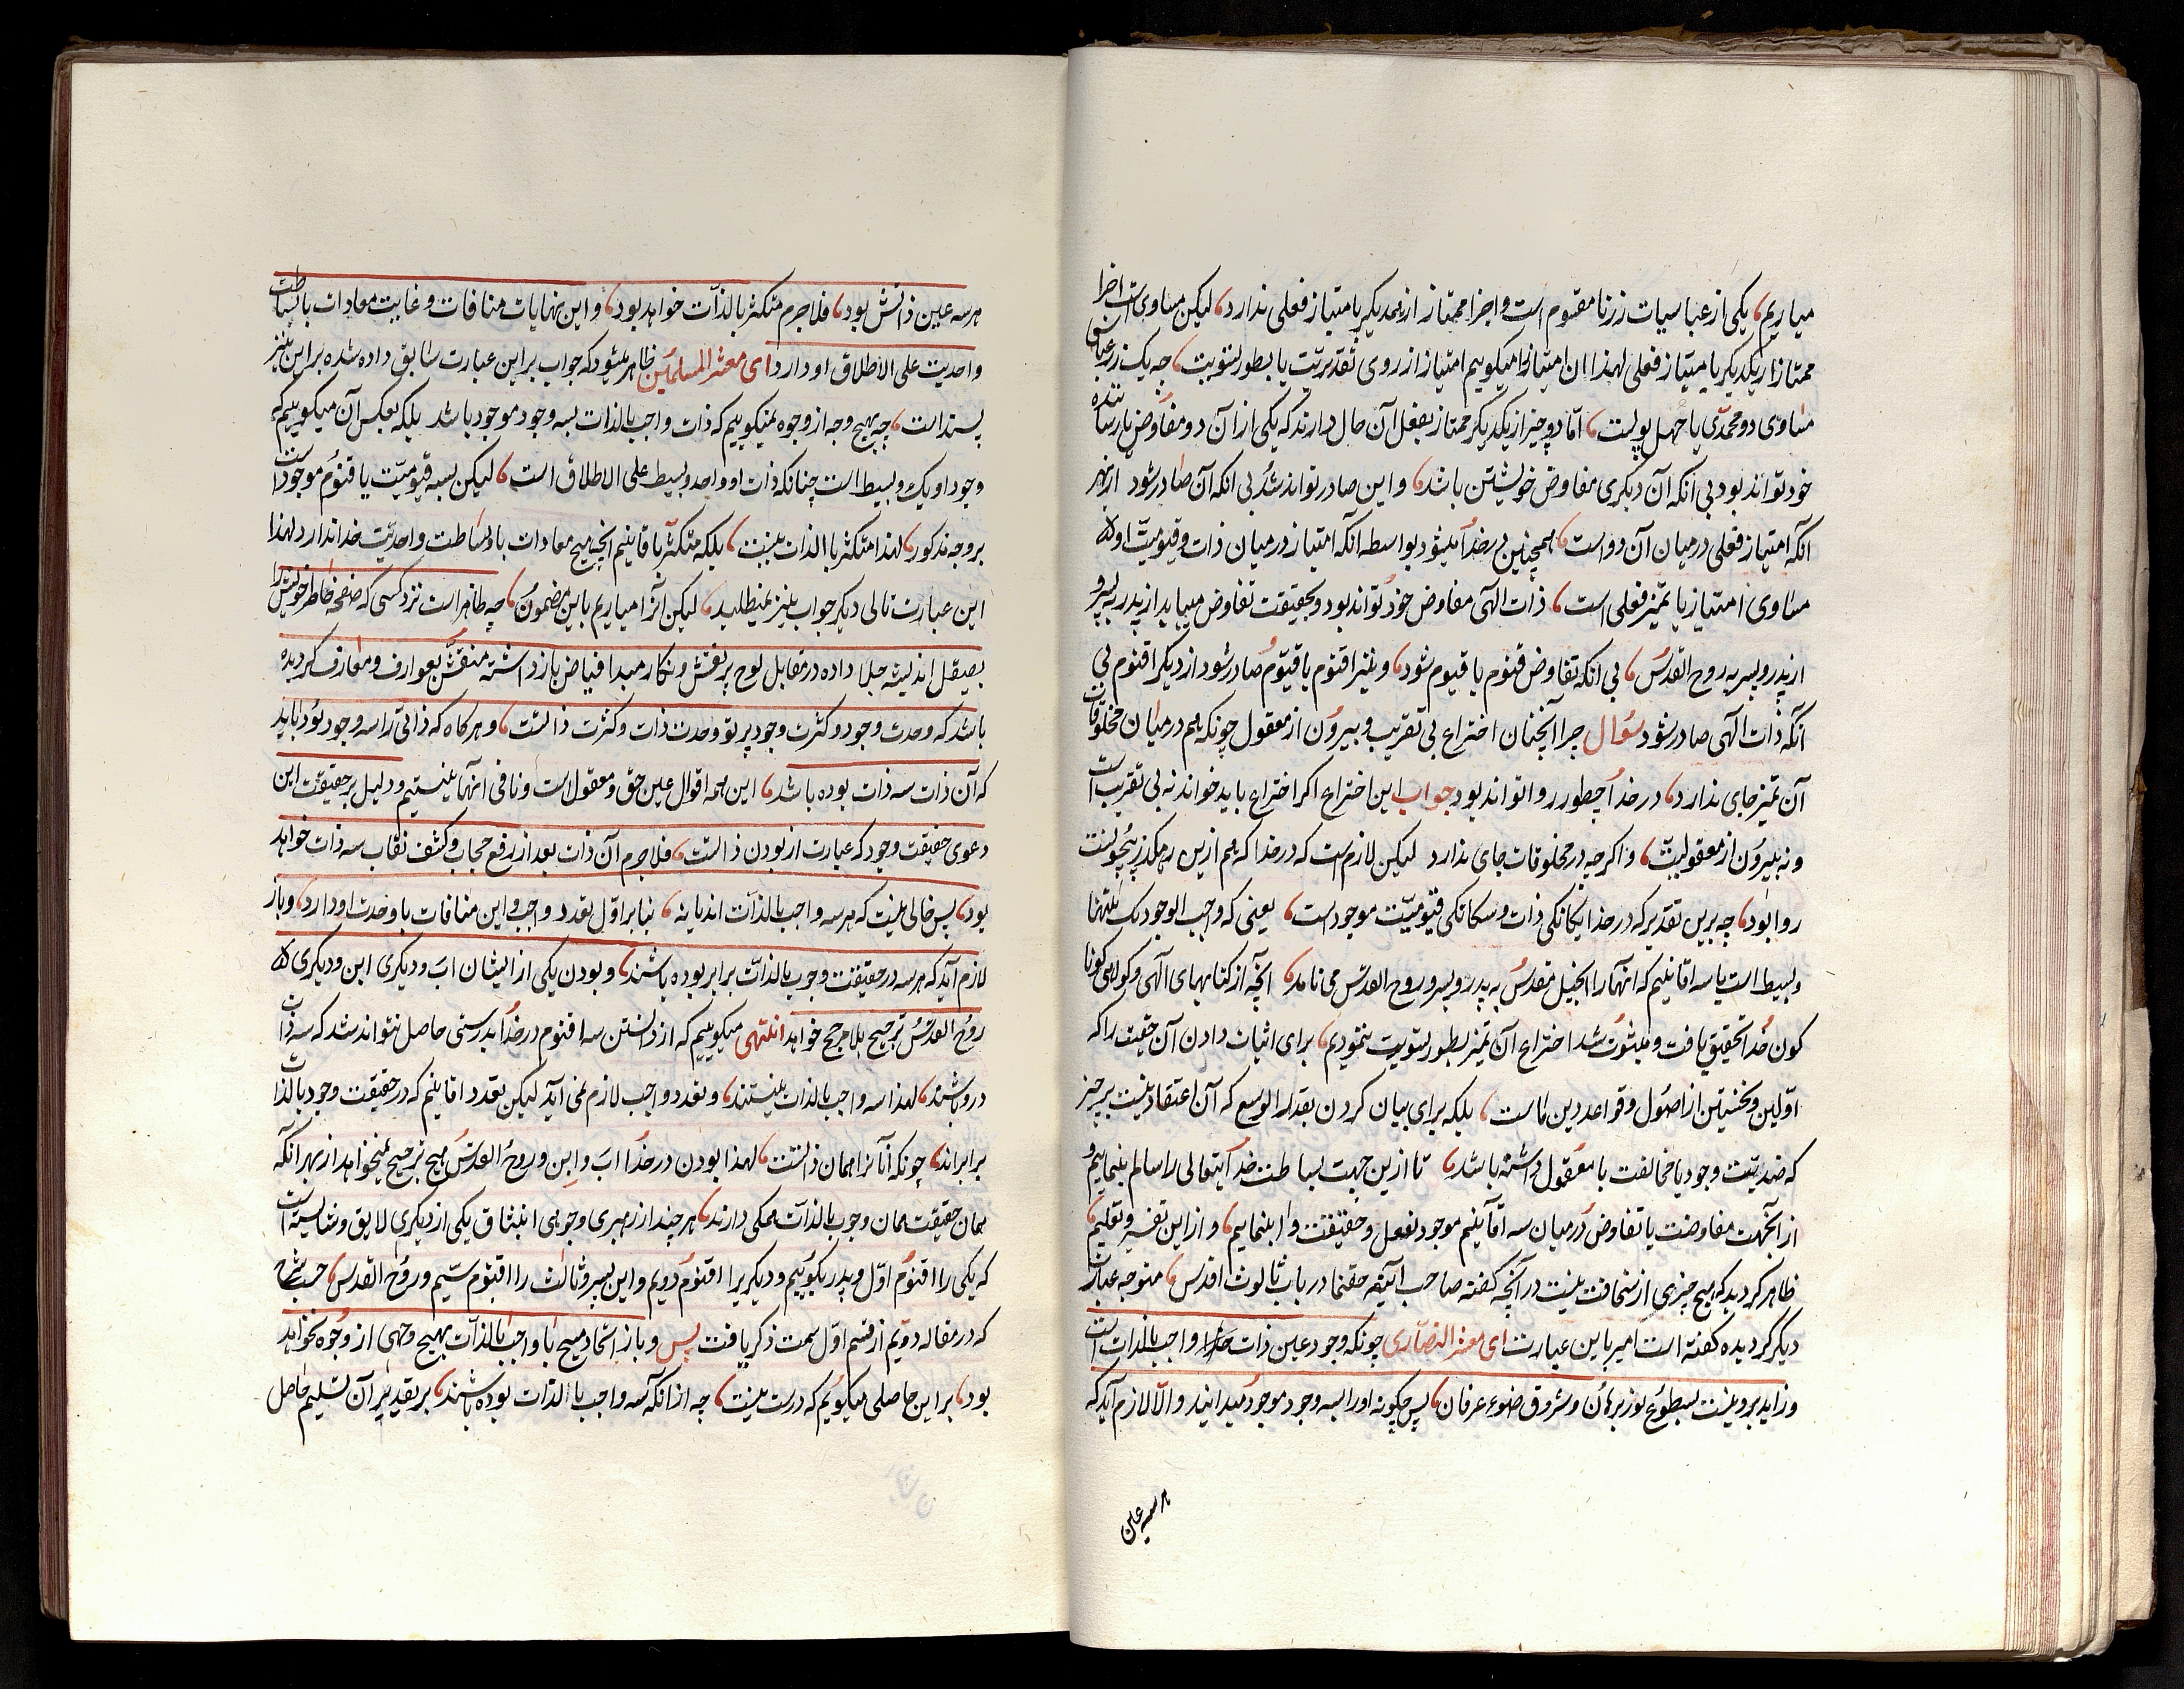 میاریم، یکی از عباسیات زرنا مقسوم است و اجزا ممتاز از همدیگر با متیاز فعلی ندارد، لیکن مساوی است اجزا
ممتاز از یکدیگر با متیاز فعلی لهذا ان امتیاز را میکوییم امتیاز از روی تقدیریت یا بطور تسویت، چه یک زر عباسی
مساوی دو محمدی یا چهل پولست، امّا دو چیز از یکدیگر ممتاز بفعل آن حال دارند که یکی از آن دو مفاوض یا رساننده
خود تواند بود بی آنکه آن دیگری مفاوض خویشتن باشد، و این صادر تواند شد بی انکه آن صادر شود از بهر
آنکه امتیاز فعلی درمیان آن دو است، همچنین در خدا میشود بواسطه آنکه امتیاز درمیان ذات و قیومیت او که
مساوی امتیاز یا تمیز فعلی است، ذات الهی مفاوض خود تواند بود و بحقیقت تفاوض مییابد از پدر به پسر و
از پدر و پسر به روح القدس، بی انکه تفاوض قنوم یا قیوم شود، و نیز اقنوم یا قیّوم صادر شود از دیگر اقنوم بی
آنکه ذات الهی صادر شود سؤال چرا آنچنان اختراع بی تقریب و بیرون از معقول چونکه هم درمیان مخلوقات
آن تمیز جای ندارد، در خدا چطور روا تواند بود جواب این اختراع اگر اختراع باید خواند نه بی تقریب است
و نه بیرون از معقولیت، و اگرچه در مخلوقات جای ندارد لیکن لازم است که در خدا که هم ازین رهگذر بیچونست
روا بود، چه برین تقدیر که در خدا یکانگی ذات و سکانگی قیّومیّت موجودست، یعنی که واجب الوجود یک بلتها
و بسیط است یا سه اقانیم که انها را انجیل مقدس به پدر و پسر و روح القدس می نامد، انچه از کتابهای الهی و گواهی گوناگون
کون خدا تحقیق یافت و مثبوت شد اختراع آن تمیز بطور تسویت ننمودیم، برای اثبات دادن آن حقیقت را که
اوّلین و نخستین از اصول و قواعد دین ماست، بلکه برای بیان کردن بقدر الوسع که آن اعتقاد نیست بر چیز
که ضدیّت وجود یا مخالفت با معقول داشته باشد، تا ازین جهت بساطت خدایتعالی را سالم بنماییم و
از آنجهت مفاوضت یا تفاوض درمیان سه اقانیم موجود بفعل و حقیقت وا بنماییم، و از این تفسیر و تعلیم،
ظاهر گردید که هیچ چیزی از سخافت نیست در آنچه گفته صاحب آئینه حقنما در باب ثالوث اقدس، متوجه عبارت
دیگر گردیده گفته است امیر باین عبارت ای معشر النصّاری چونکه وجود عین ذات خدا و واجب بالذات است
و زاید برو نیست بسطوع نور برهان و شروق ضوء عرفان، پس چگونه او را بسه وجود موجود میدانید و الّا لازم آید که
هر سه عین
هر سه عین ذاتش بود، فلا جرم متکثر بالذّات خواهد بود، و این نهایات منافات و غایت معادات با بساطت
و احدیت علی الاطلاق او دارد ای معشر المسلمین ظاهر میشود که جواب بر این عبارت سابق داده شده بر این نیز
پسندست، چه بهیچ وجه از وجوه نمیکوییم که ذات واجب بالذات بسه وجود موجود باشد بلکه بعکس آن میکوییم که
وجود او یک و بسیط است چنانکه ذات او واحد و بسیط علی الاطلاق است، لیکن بسه قیّومیّت یا قنوم موجود است
بر وجه مذکور، لهذا متکثر با الذات نیست، بلکه متکثّر با قانیم انچه هیچ معادات با بساطت و احدیّت خدا ندارد لهذا
این عبارت تالی دیگر جواب نیز نمیطلبد، لیکن انرا میاریم باین مضمون، چه ظاهر است نزد کسی که صفحه خاطر خویش را
بصیقل اندیشه جلا داده در مقابل لوح پر نقش و نگار مبدا فیاض بازداشته منقّش بعوارف و معارف گردیده
باشد که وحدت وجود و کثرت وجود پرتو وحدت ذات و کثرت ذاتست، و هرگاه که ذاتی را سه وجود بود باید
که آن ذات سه ذات بوده باشد، این همه اقوال عین حق و معقولست و نافی انها نیستیم و دلیل بر حقیقت این
دعوی حقیقت وجود که عبارت از بودن ذاتست، فلا جرم آن ذات بعد از رفع حجاب و کشف نقاب سه ذات خواهد
بود، پس خالی نیست که هر سه واجب بالذّات اند یا نه، بنا بر اوّل تعدد واجب و این منافات با وحدت او دارد، و باز
لازم آید که هر سه در حقیقت وجوب بالذات برابر بوده باشند، و بودن یکی از ایشان اب و دیگری ابن و دیگری که
روح القدس ترجیح بلا مرجح خواهد انتهی میکوییم که از دانستن سه اقنوم در خدا بدرستی حاصل نتواند شد که سه ذات
درو باشند، لهذا سه واجب بالذات نیستند، و تعدد واجب لازم نمی آید لیکن تعدد اقانیم که در حقیقت وجود بالذات
برابر اند، چونکه آنان را همان ذاتست، لهذا بودن در خدا اب و ابن و روح القدس هیچ ترجیح نمیخواهد از بهر آنکه
همان حقیقت همان وجوب بالذات همگی دارند، هر چند از رهبری وجوهی انبثاق یکی از دیگری لایق و شایسته است
که یکی را اقنوم اوّل و پدر بگوییم و دیگریرا اقنوم دویم و ابن پسر و ثالث را اقنوم سیّم و روح القدس،
که در مقاله دویم از قسم اوّل سمت ذکر یافت پس و باز اتحاد مسیح با واجب بالذات بهیچ وجهی از وجوه نخواهد
بود، بر این حاصلی میگوئیم که درست نیست، چه از انکه سه واجب با الذات بوده باشند، بر تقدیر آن تسلیم حاصل